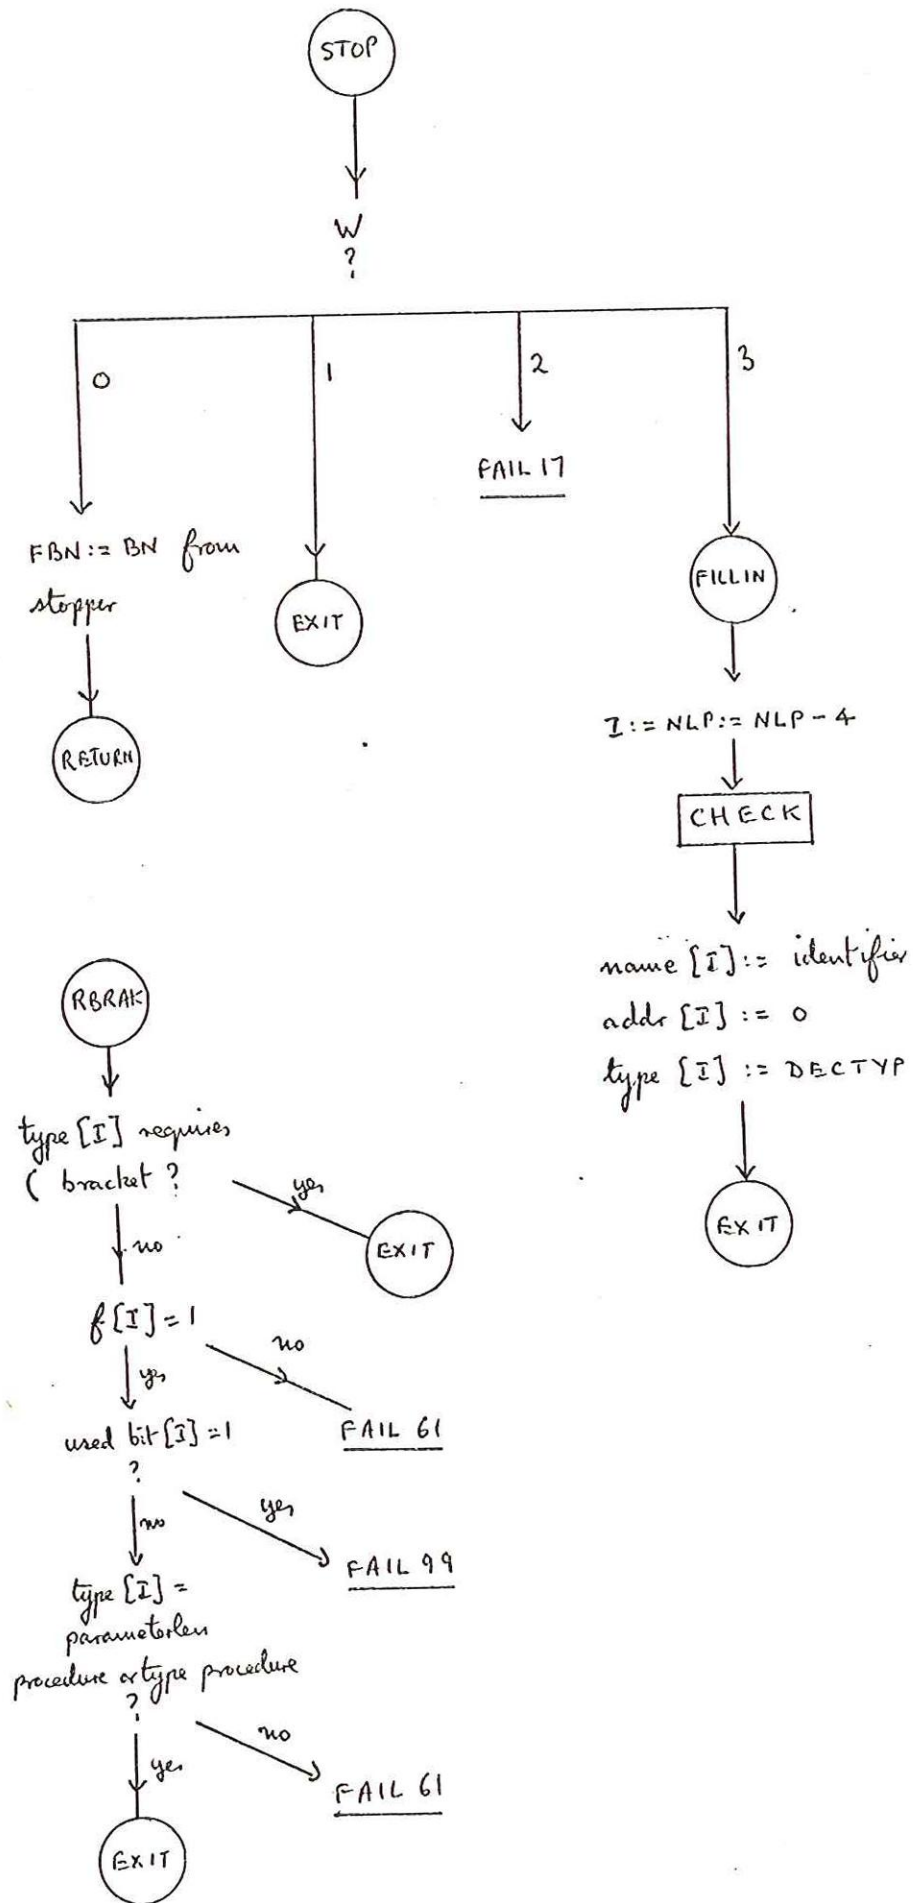 STOP
W
?
0
1
2
3
FAIL 17
FBN := BN from
stopper
EXIT
FILLIN
RETURN
I := NLP := NLP - 4
CHECK
name [I] := identifier
addr [I] := 0
type [I] := DECTYP
EXIT
RBRAK
type [I] requires
( bracket ?
yes
EXIT
no
f [I] = 1
no
yes
FAIL 61
used bit [I] = 1
?
yes
no
FAIL 99
type [I] =
parameterless
procedure or type procedure
?
no
yes
FAIL 61
EXIT